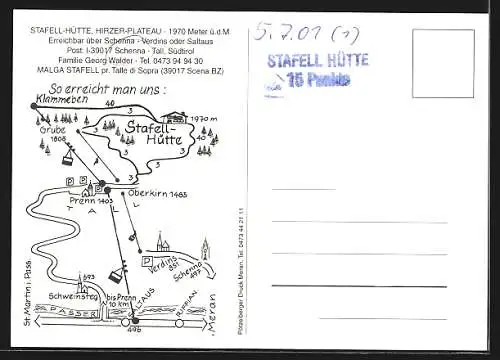 STAFELL-HÜTTE, HIRZER-PLATEAU · 1970 Meter ü.d.M
Erreichbar über Schenna - Verdins oder Saltaus
Post: I-39017 Schenna - Tall, Südtirol
Familie Georg Walder - Tel. 0473 94 94 30
MALGA STAFELL pr. Talle di Sopra (39017 Scena BZ)
So erreicht man uns:
Klammeben
40
3
3
1970 m
Grube
1808
Stafell-
Hütte
40
3
3
3
P
P
Prenn 1403
Oberkirn 1465
TALL
P
Verdins
851
Schenna
497
593
Schweinsteg
bis Prenn
10 km
SALTAUS
RIFFIAN
St. Martin i. Pass.
PASSER
495
Meran
Pötzelberger Druck Meran, Tel. 0473 44 21 11
5.7.01 (1)
STAFELL HÜTTE
15 Punkte